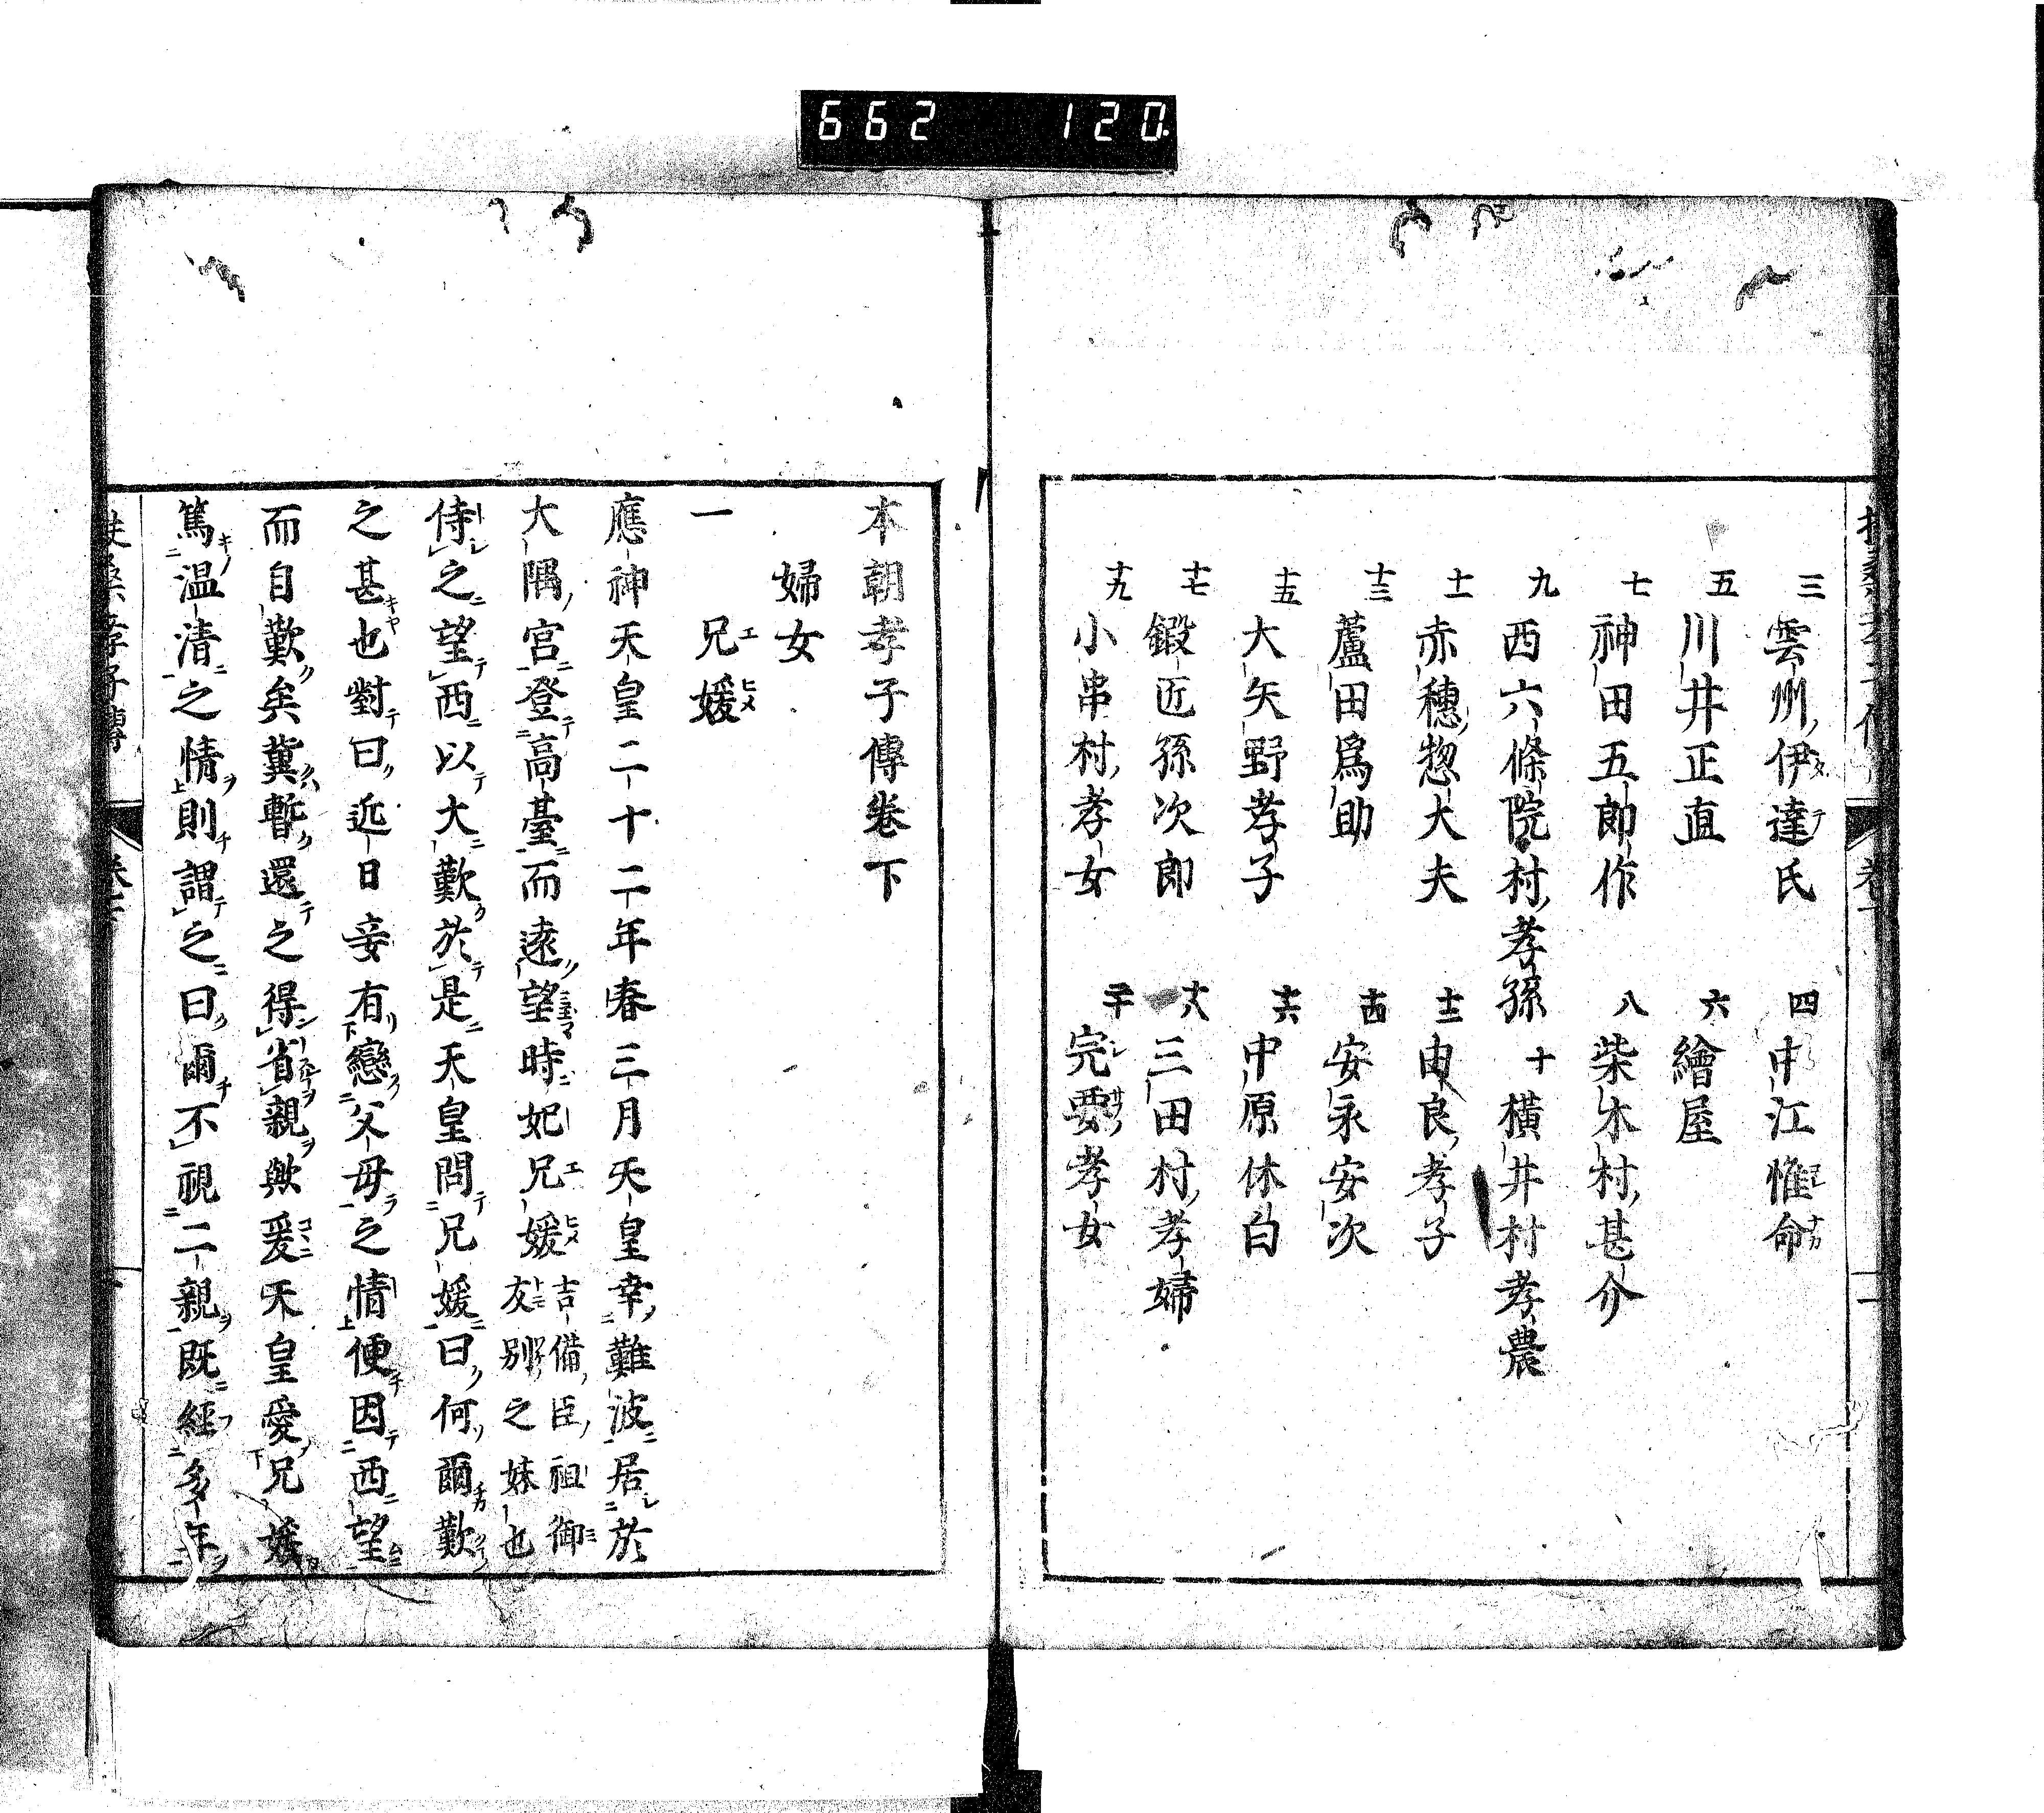 662 120
三 雲州伊達氏 四 中江惟命
五 川井正直 六 繪屋
七 神田五郎作 八 柴木村甚介
九 西六條院村孝孫 十 橫井村孝農
十一 赤穗惣大夫 十二 由良孝子
十三 蘆田爲助 十四 安永安次
十五 大矢野孝子 十六 中原休白
十七 鍛匠孫次郎 十八 三田村孝婦
十九 小串村孝女 二十 宍粟孝女
本朝孝子傳卷下
婦女
一 兄媛
應神天皇二十二年春三月天皇幸難波居於
大隅宮登高臺而遠望時妃兄媛吉備臣祖御友別之妹也
侍之望西以大歎於是天皇問兄媛曰何爾歎
之甚也對曰近日妾有戀父母之情便因西望
而自歎矣冀暫還之得省親歟爰天皇愛兄媛
篤溫凊之情則謂之曰爾不視二親既經多年